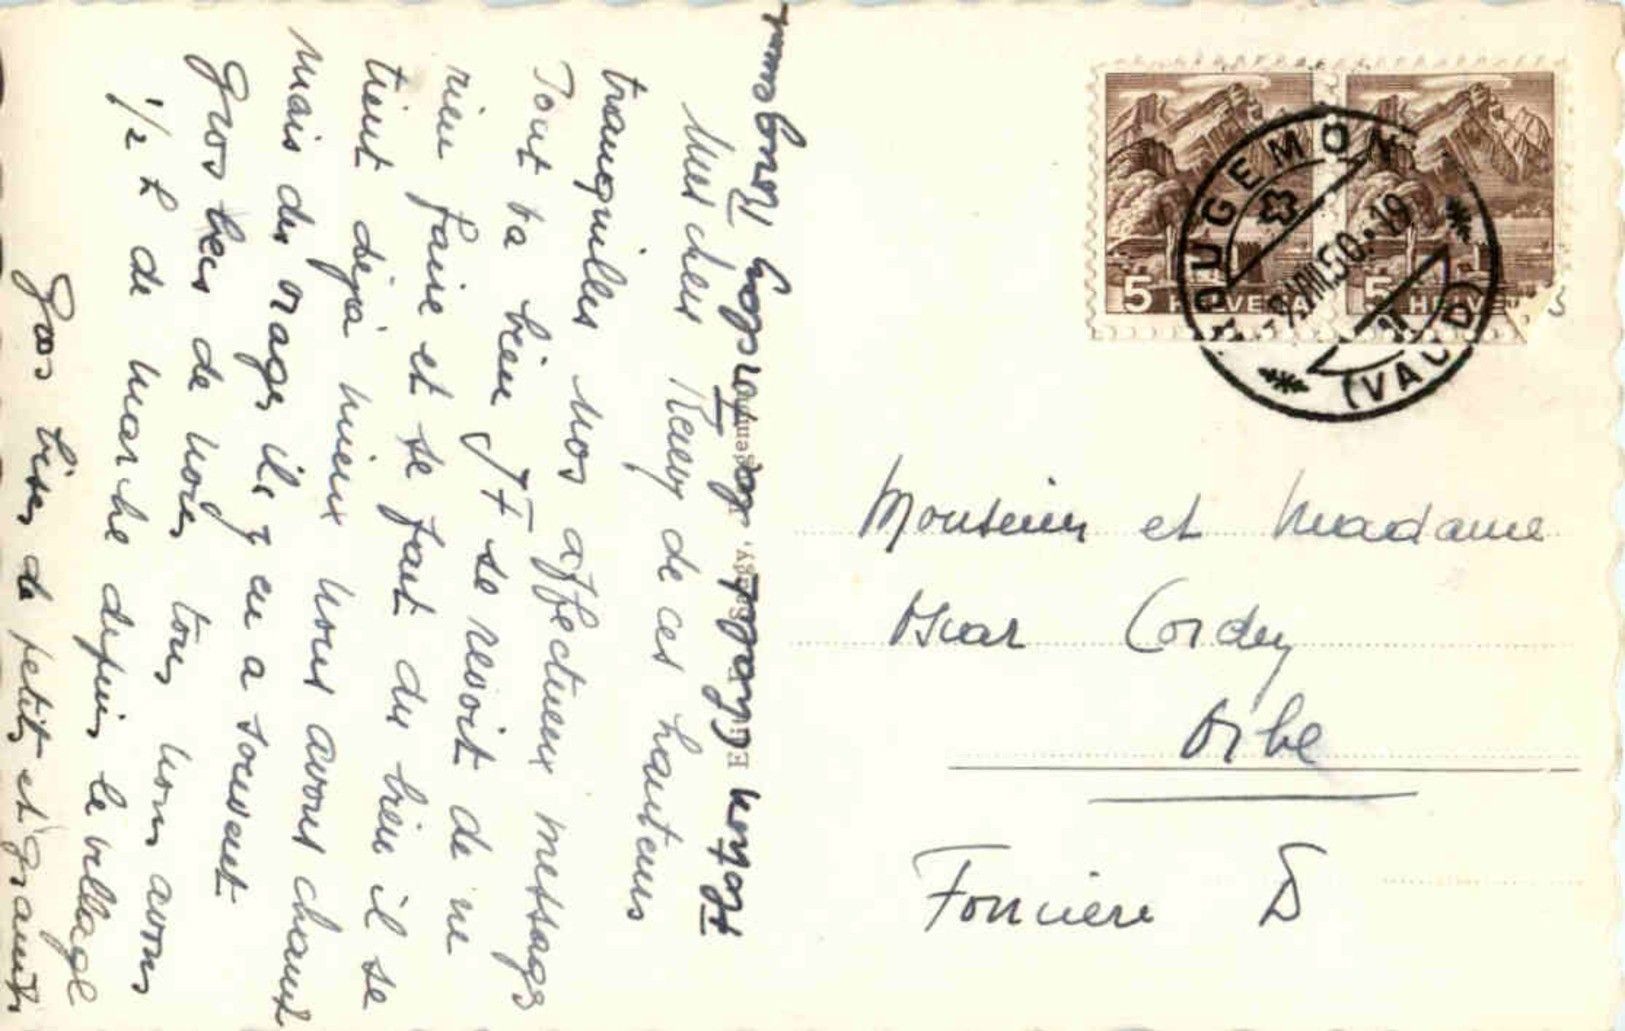 Mes chers
de ces hauteurs
tranquilles nos affectueux messages
Tout va bien JF se revoit de ne
rien faire et se fait du bien il se
tient déjà mieux nous avons chaud
mais des orages il y en a souvent
Gros becs de nous tous nous avons
1/2 h de marche depuis le village
Gros bises de petits et grands
Monsieur et Madame
Oscar Cordey
Orbe
Foncière D
5 HELVETIA
5 HELVETIA
ROUGEMONT
VIII.50
(VAUD)